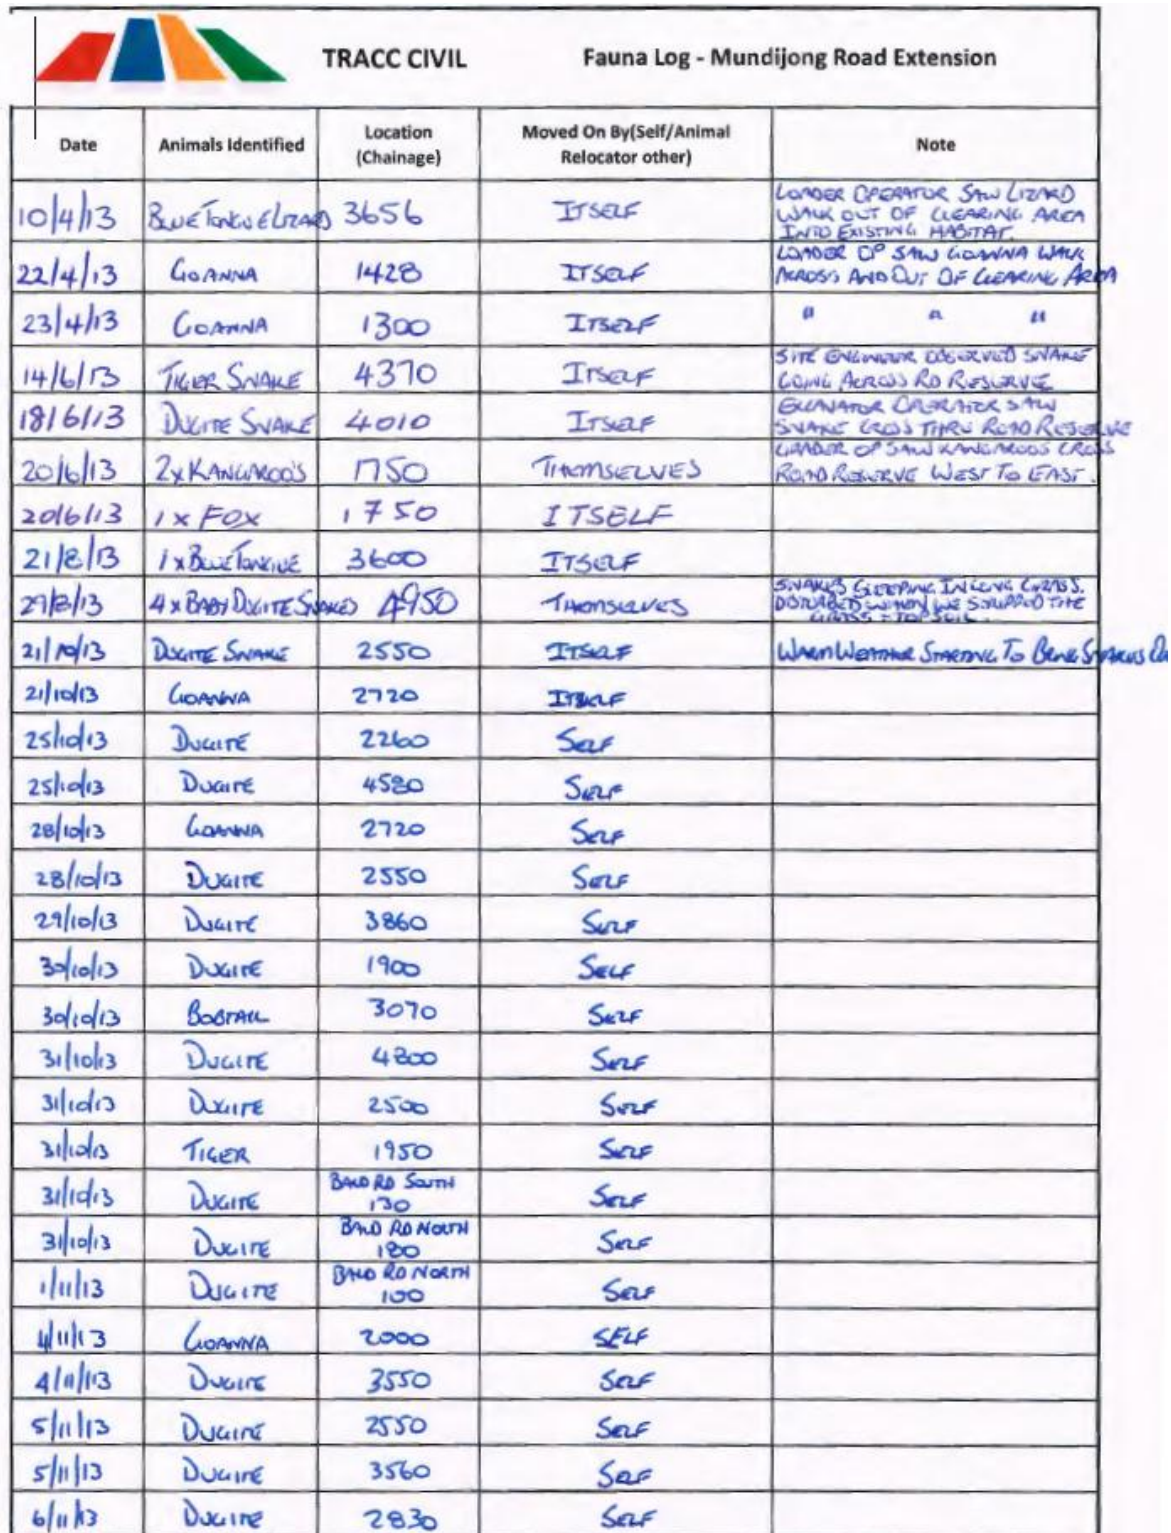 TRACC CIVIL Fauna Log - Mundijong Road Extension
Date Animals Identified Location (Chainage) Moved On By(Self/Animal Relocator other) Note
10/4/13 BLUE TONGUE LIZARD 3656 ITSELF LOADER OPERATOR SAW LIZARD
WALK OUT OF CLEARING AREA
INTO EXISTING HABITAT.
22/4/13 GOANNA 1428 ITSELF LOADER OP SAW GOANNA WALK
ACROSS AND OUT OF CLEARING AREA
23/4/13 GOANNA 1300 ITSELF " " "
14/6/13 TIGER SNAKE 4370 ITSELF SITE ENGINEER OBSERVED SNAKE
GOING ACROSS RD RESERVE
18/6/13 DUGITE SNAKE 4010 ITSELF EXCAVATOR OPERATOR SAW
SNAKE CROSS THRU ROAD RESERVE
20/6/13 2x KANGAROO'S 1750 THEMSELVES GRADER OP SAW KANGAROOS CROSS
ROAD RESERVE WEST TO EAST.
20/6/13 1 x FOX 1750 ITSELF
21/8/13 1 x BLUE TONGUE 3600 ITSELF
29/8/13 4 x BABY DUGITE SNAKES 4950 THEMSELVES SNAKES SLEEPING IN LONG GRASS.
DISTURBED WHEN WE STRIPPED THE
GRASS + TOPSOIL.
21/10/13 DUGITE SNAKE 2550 ITSELF WARM WEATHER STARTING TO BRING SNAKES
21/10/13 GOANNA 2720 ITSELF
25/10/13 DUGITE 2260 SELF
25/10/13 DUGITE 4580 SELF
28/10/13 GOANNA 2720 SELF
28/10/13 DUGITE 2550 SELF
29/10/13 DUGITE 3860 SELF
30/10/13 DUGITE 1900 SELF
30/10/13 BOBTAIL 3070 SELF
31/10/13 DUGITE 4800 SELF
31/10/13 DUGITE 2500 SELF
31/10/13 TIGER 1950 SELF
31/10/13 DUGITE BALD RD SOUTH 130 SELF
31/10/13 DUGITE BALD RD NORTH 180 SELF
1/11/13 DUGITE BALD RD NORTH 100 SELF
4/11/13 GOANNA 2000 SELF
4/11/13 DUGITE 3550 SELF
5/11/13 DUGITE 2550 SELF
5/11/13 DUGITE 3560 SELF
6/11/13 DUGITE 2830 SELF